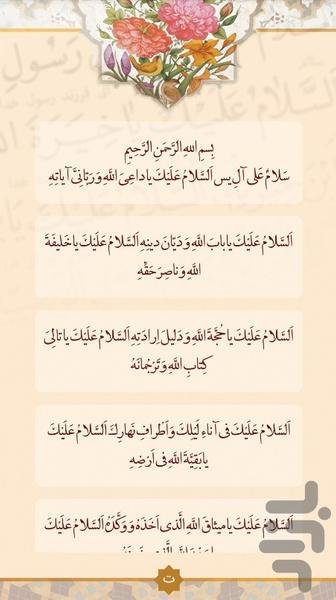 بِسْمِ اللهِ الرَّحْمَنِ الرَّحِيمِ
سَلامٌ عَلى آلِ يس اَلسَّلامُ عَلَيْكَ يا داعِىَ اللَّهِ وَرَبّانِىَّ آياتِهِ
اَلسَّلامُ عَلَيْكَ يا بابَ اللَّهِ وَدَيّانَ دينِهِ اَلسَّلامُ عَلَيْكَ يا خَليفَةَ
اللَّهِ وَناصِرَ حَقِّهِ
اَلسَّلامُ عَلَيْكَ يا حُجَّةَ اللَّهِ وَدَليلَ اِرادَتِهِ اَلسَّلامُ عَلَيْكَ يا تالِىَ
كِتابِ اللَّهِ وَتَرْجُمانَهُ
اَلسَّلامُ عَلَيْكَ فى آناءِ لَيْلِكَ وَاَطْرافِ نَهارِكَ اَلسَّلامُ عَلَيْكَ
يا بَقِيَّةَ اللَّهِ فى اَرْضِهِ
اَلسَّلامُ عَلَيْكَ يا ميثاقَ اللَّهِ الَّذى اَخَذَهُ وَوَكَّدَهُ اَلسَّلامُ عَلَيْكَ
ت
بازار